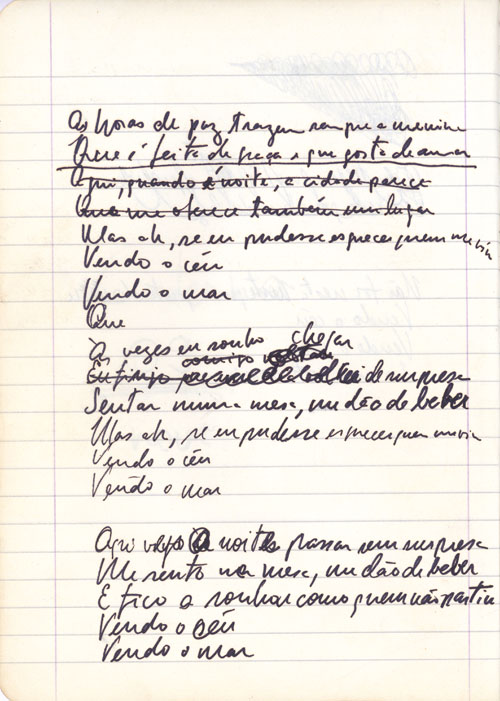 As horas de paz trazem sempre a menina
Que é feita de graça e que gosta de amar
Aqui, quando é noite, a cidade parece
Que me oferece também um lugar
Mas ah, se eu pudesse esquecer quem me viu
Vendo o céu
Vendo o mar
Que
Às vezes eu sonho chegar
Eu finjo de surpresa
Sentar numa mesa, me dão de beber
Mas ah, se eu pudesse esquecer quem me viu
Vendo o céu
Vendo o mar
Aqui vejo a noite passar sem surpresa
Me sento na mesa, me dão de beber
E fico a sonhar como quem não partiu
Vendo o céu
Vendo o mar